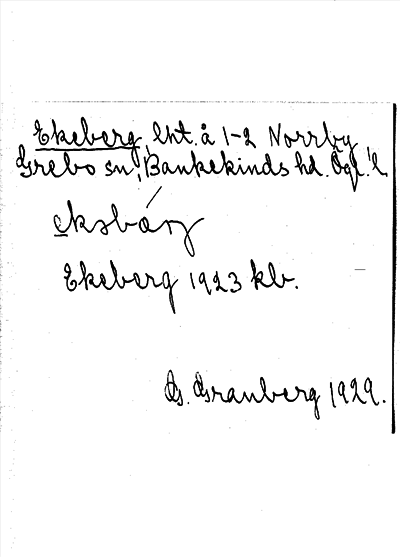 Ekeberg, lht. å 1-2 Norrby
Grebo sn, Bankekinds hd. Ögl. l.
eksbärj
Ekeberg 1923 kb.
G. Granberg 1929.